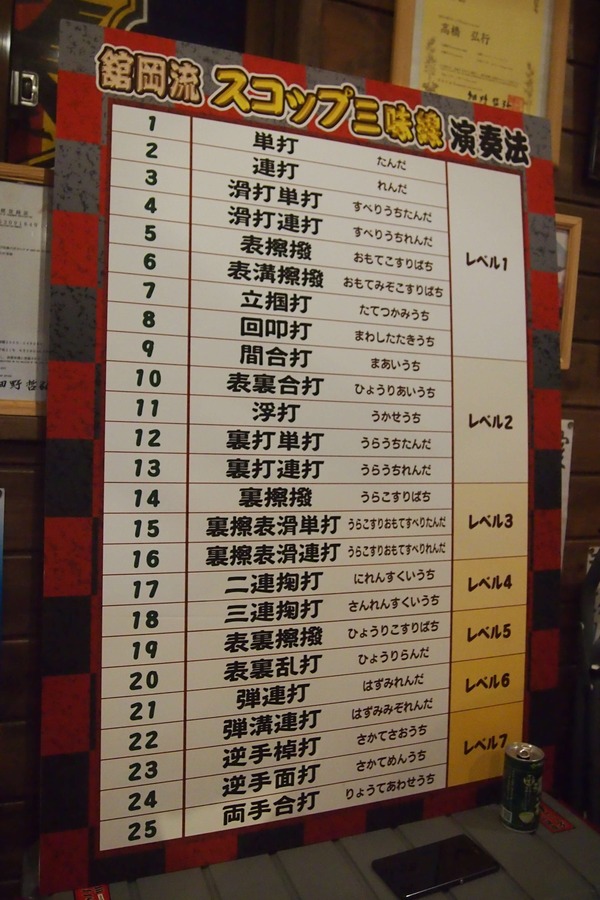 高橋 弘行
舘岡流 スコップ三味線 演奏法
1 単打 たんだ レベル1
2 連打 れんだ
3 滑打単打 すべりうちたんだ
4 滑打連打 すべりうちれんだ
5 表擦撥 おもてこすりばち
6 表溝擦撥 おもてみぞこすりばち
7 立掴打 たてつかみうち
8 回叩打 まわしたたきうち
9 間合打 まあいうち レベル2
10 表裏合打 ひょうりあいうち
11 浮打 うかせうち
12 裏打単打 うらうちたんだ
13 裏打連打 うらうちれんだ
14 裏擦撥 うらこすりばち レベル3
15 裏擦表滑単打 うらこすりおもてすべりたんだ
16 裏擦表滑連打 うらこすりおもてすべりれんだ
17 二連掬打 にれんすくいうち レベル4
18 三連掬打 さんれんすくいうち
19 表裏擦撥 ひょうりこすりばち レベル5
20 表裏乱打 ひょうりらんだ
21 弾連打 はずみれんだ レベル6
22 弾溝連打 はずみみぞれんだ
23 逆手棹打 さかてさおうち レベル7
24 逆手面打 さかてめんうち
25 両手合打 りょうてあわせうち